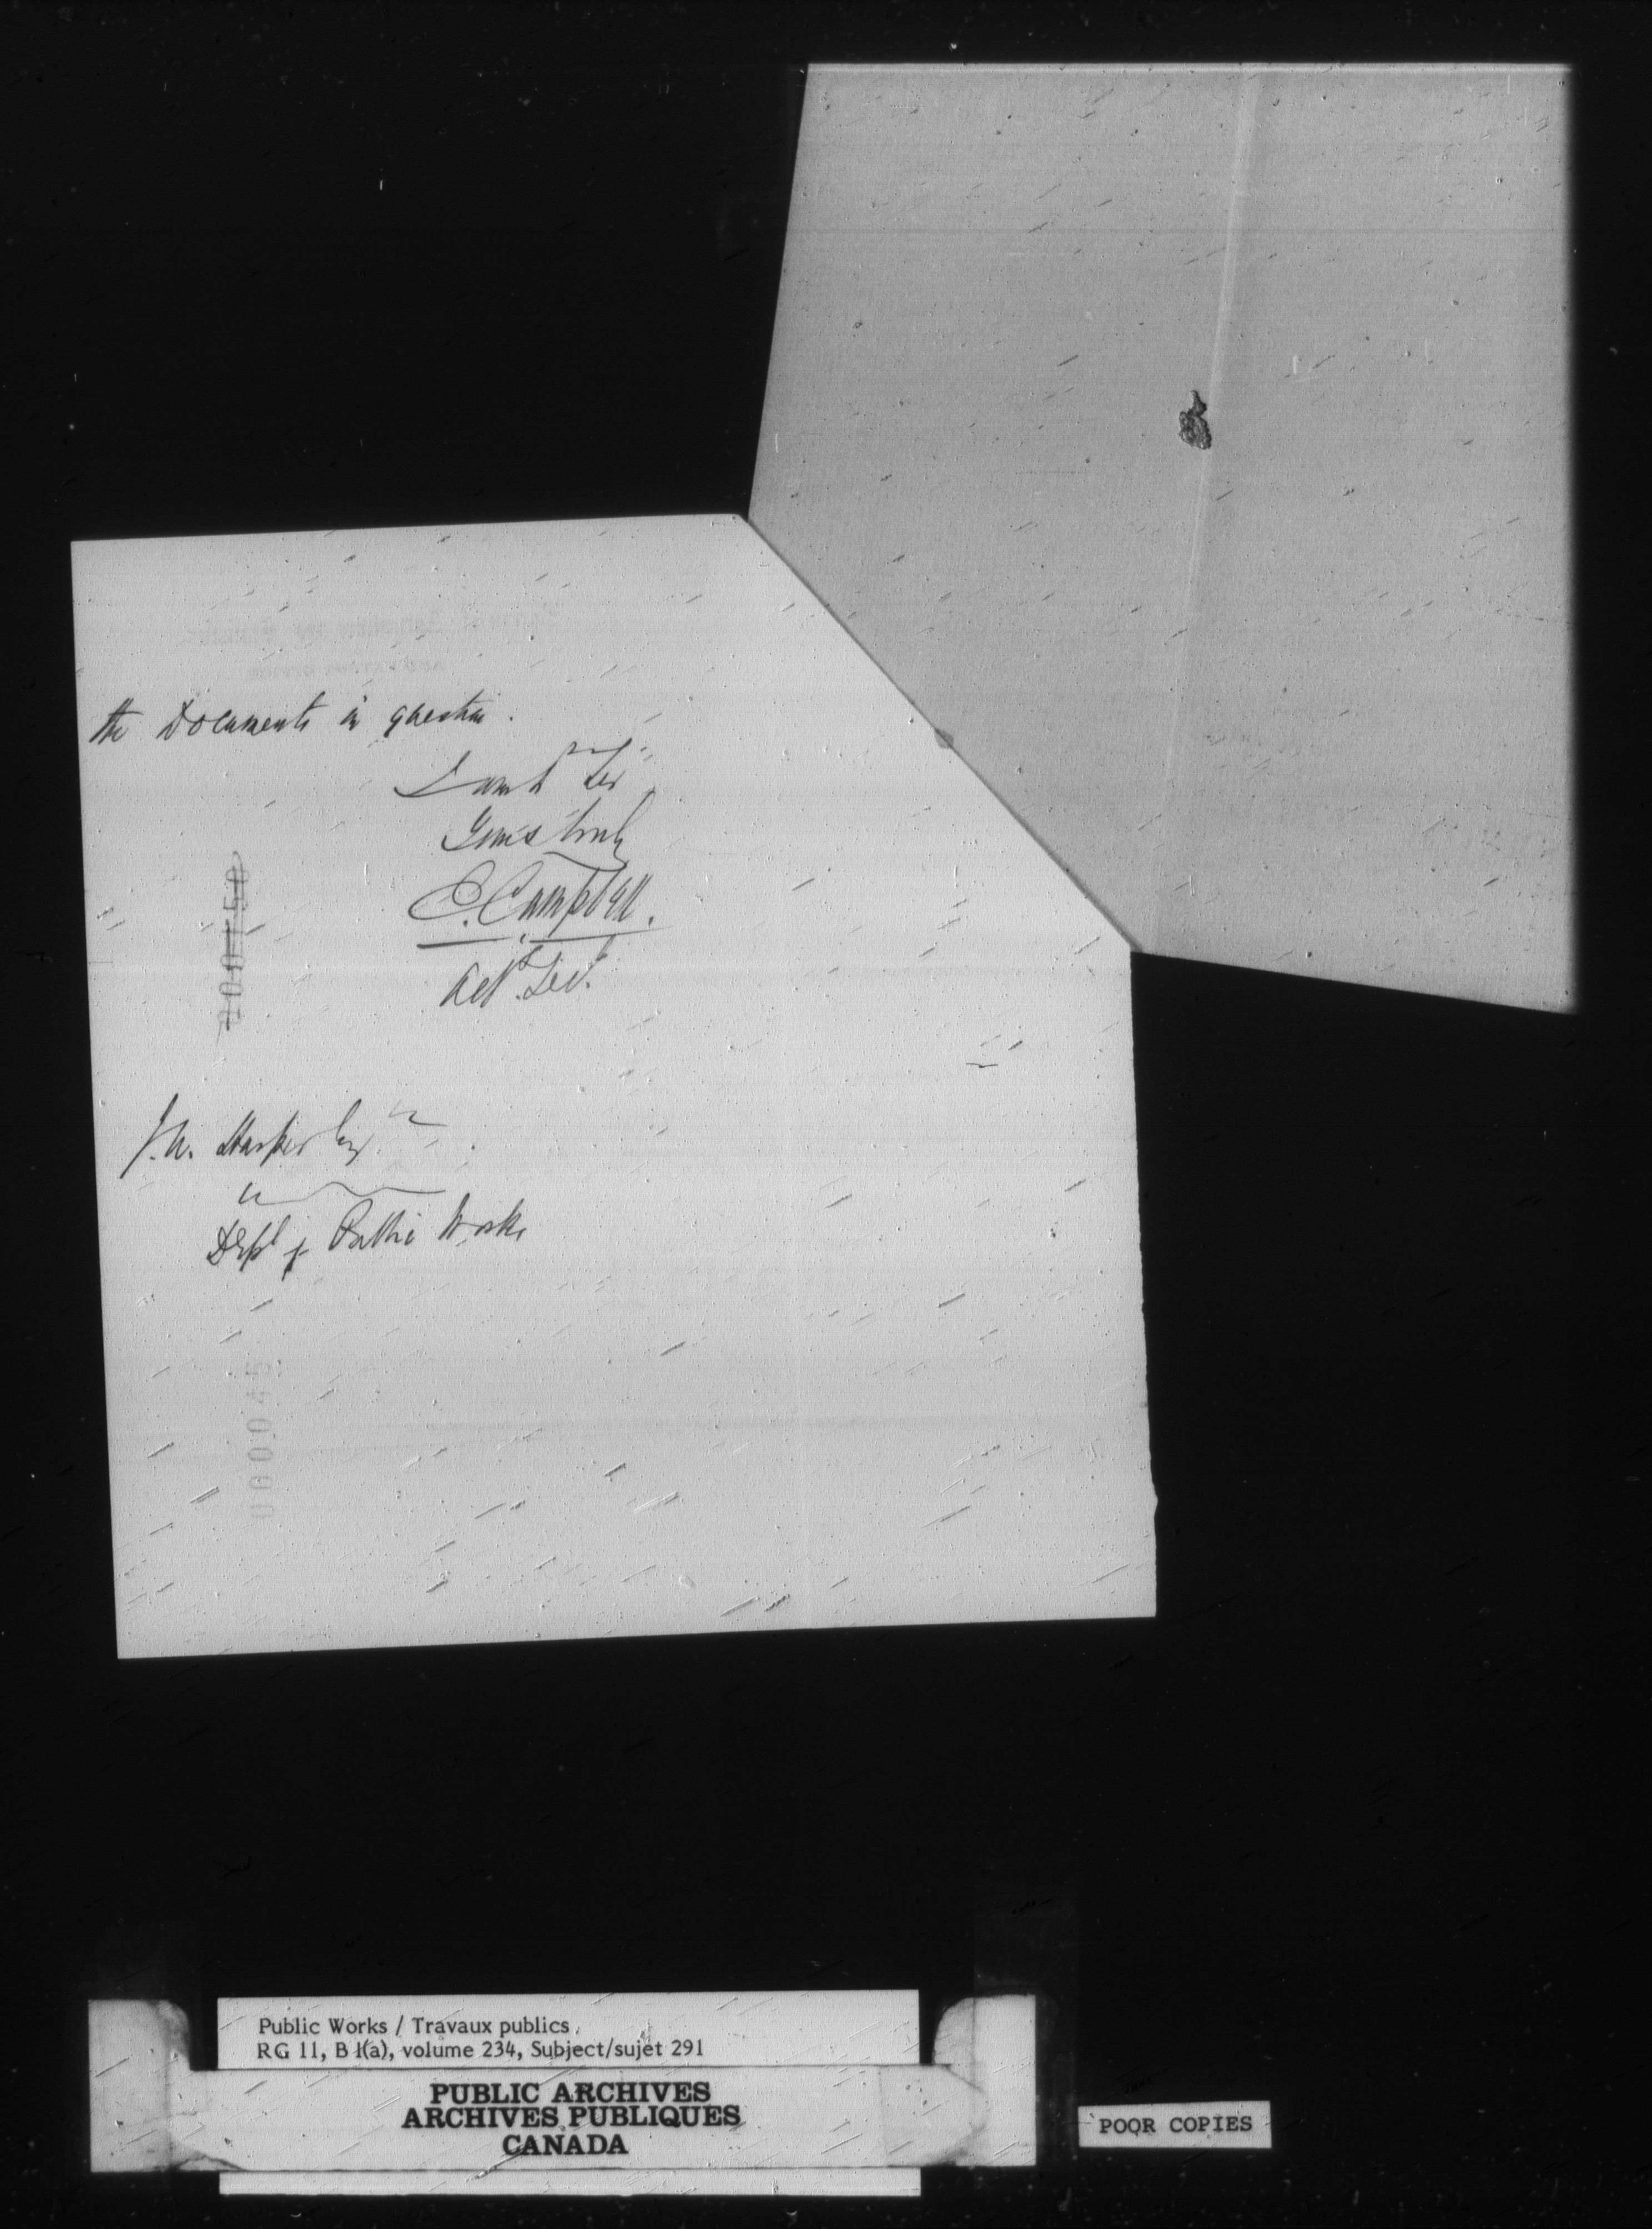 the Documents in question.
I am D Sir
Yours truly
C. Campbell.
Actg. Sec.
000150
J.W. Harper Esq.
Dept of Public Works
000045
Public Works / Travaux publics
RG 11, B 1(a), volume 234, Subject/sujet 291
PUBLIC ARCHIVES
ARCHIVES PUBLIQUES
CANADA
POOR COPIES